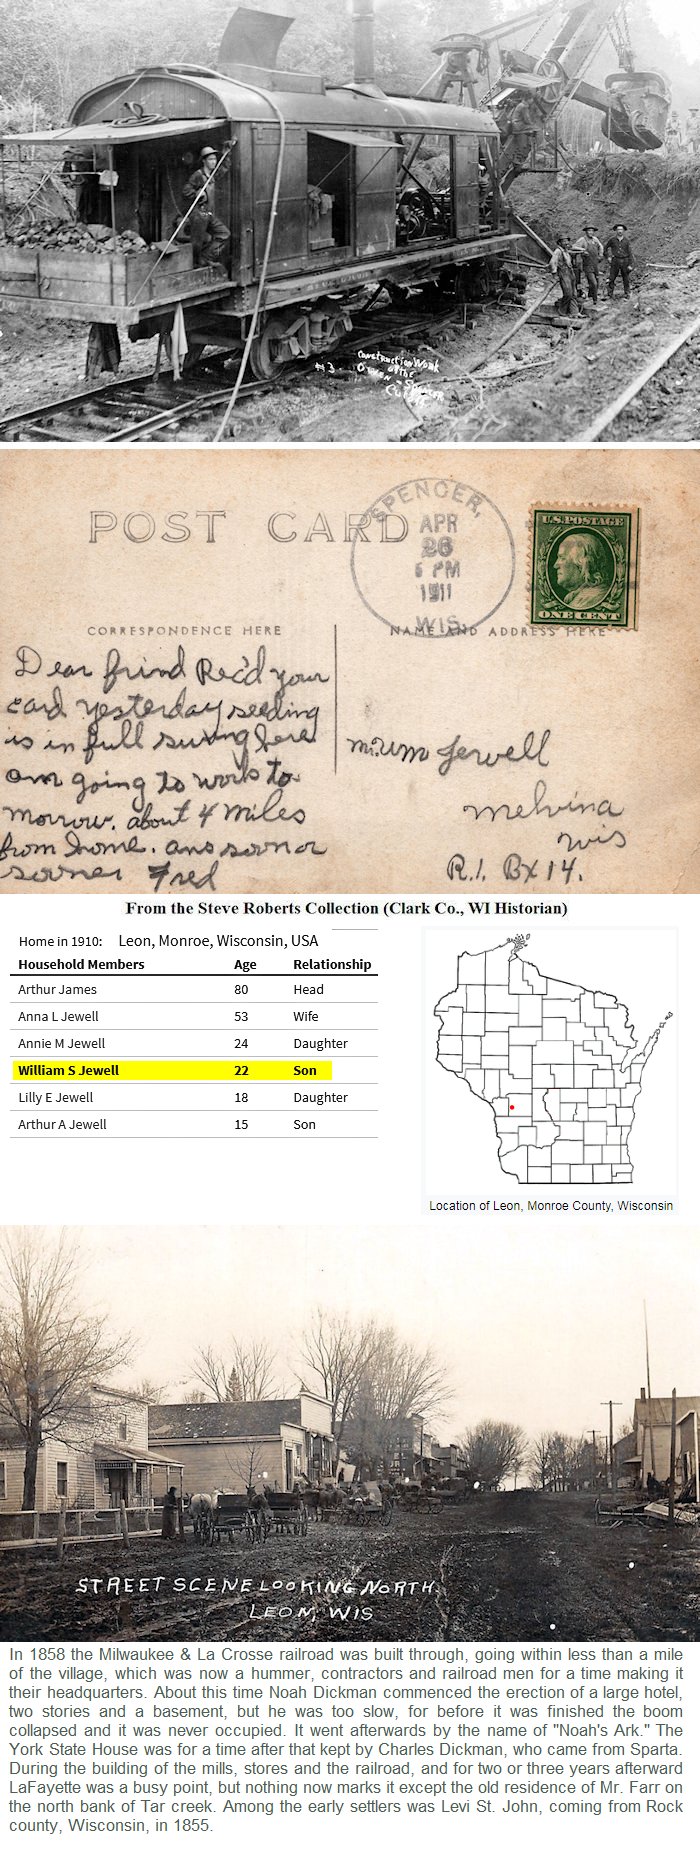 #3. Construction Work
of the
Owen - Spencer
Cutoff
POST CARD
SPENCER,
APR
26
6 PM
1911
WIS.
U.S. POSTAGE
ONE CENT
CORRESPONDENCE HERE
NAME AND ADDRESS HERE
Dear frind Rec'd your
card yesterday seeding
is in full swing here
am going to work to
morrow. about 4 miles
from home. ans soon or
sooner Fred
Mr Wm Jewell
Melvina
Wis
R.1. Bx 14.
From the Steve Roberts Collection (Clark Co., WI Historian)
Home in 1910: Leon, Monroe, Wisconsin, USA
Household Members Age Relationship
Arthur James 80 Head
Anna L Jewell 53 Wife
Annie M Jewell 24 Daughter
William S Jewell 22 Son
Lilly E Jewell 18 Daughter
Arthur A Jewell 15 Son
Location of Leon, Monroe County, Wisconsin
STREET SCENE LOOKING NORTH,
LEON, WIS
In 1858 the Milwaukee & La Crosse railroad was built through, going within less than a mile
of the village, which was now a hummer, contractors and railroad men for a time making it
their headquarters. About this time Noah Dickman commenced the erection of a large hotel,
two stories and a basement, but he was too slow, for before it was finished the boom
collapsed and it was never occupied. It went afterwards by the name of "Noah's Ark." The
York State House was for a time after that kept by Charles Dickman, who came from Sparta.
During the building of the mills, stores and the railroad, and for two or three years afterward
LaFayette was a busy point, but nothing now marks it except the old residence of Mr. Farr on
the north bank of Tar creek. Among the early settlers was Levi St. John, coming from Rock
county, Wisconsin, in 1855.